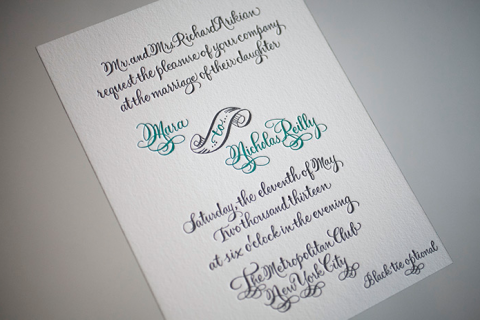 Mr. and Mrs. Richard Arikian
request the pleasure of your company
at the marriage of their daughter
Mara
to
Nicholas Reilly
Saturday, the eleventh of May
Two thousand thirteen
at six o'clock in the evening
The Metropolitan Club
New York City
Black tie optional